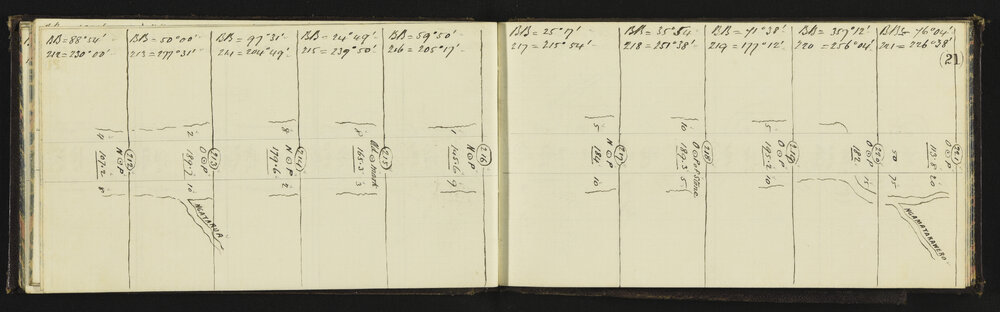 BB = 88°54'
212 = 230°00'
BB = 50°00'
213 = 277°31'
BB = 97°31'
214 = 204°49'
BB = 24°49'
215 = 239°50'
BB = 59°50'
216 = 205°17'
BB = 25°17'
217 = 215°54'
BB = 35°54'
218 = 251°38'
BB = 71°38'
219 = 177°12'
BB = 357°12'
220 = 256°04'
BB = 76°04'
221 = 226°38'
(21)
212
N ⊙ P
4 107.2 8
213
O ⊙ P
2 189.7 10
NGATARUA
214
N ⊙ P
8 179.6 2
215
Old ⊙ mark
8 165.3 3
216
N ⊙ P
1 145.6 9
217
N ⊙ P
5 184 10
218
O ⊙ P & Stone
10 189.3 5
219
O ⊙ P
5 195.2 10
220
O ⊙ P
182 15
221
O ⊙ P
113.8 20
50 75
NGAMATARAWERO